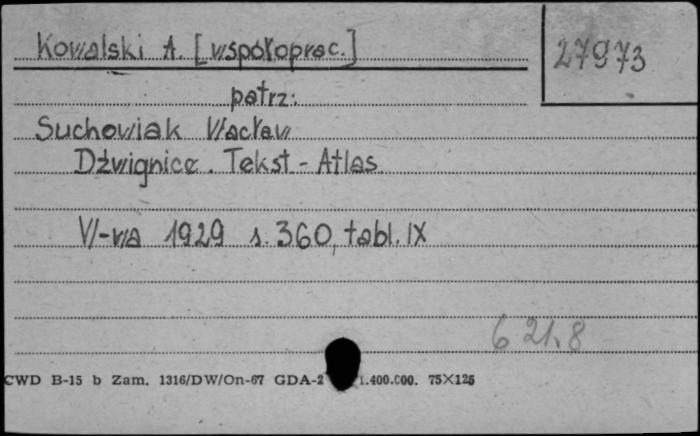 Kowalski A. [współoprac.]
27973
patrz:
Suchowiak Wacław
Dźwignice. Tekst - Atlas.
W-wa 1929 s. 360, tabl. IX
621.8
CWD B-15 b Zam. 1316/DW/On-67 GDA-2 1.400.000. 75×125